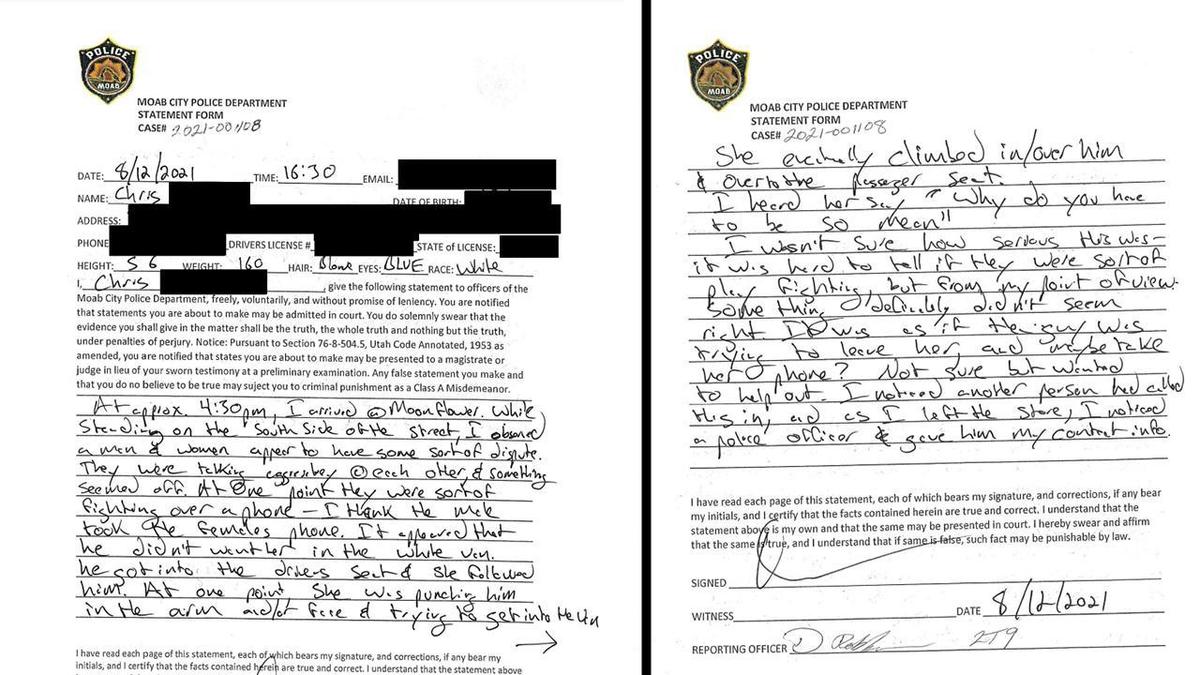 POLICE
MOAB
MOAB CITY POLICE DEPARTMENT
STATEMENT FORM
CASE# 2021-001108
DATE: 8/12/2021 TIME: 16:30 EMAIL:
NAME: Chris DATE OF BIRTH:
ADDRESS:
PHONE DRIVERS LICENSE# STATE of LICENSE:
HEIGHT: 5 6 WEIGHT: 160 HAIR: EYES: BLUE RACE: White
I, Chris , give the following statement to officers of the
Moab City Police Department, freely, voluntarily, and without promise of leniency. You are notified
that statements you are about to make may be admitted in court. You do solemnly swear that the
evidence you shall give in the matter shall be the truth, the whole truth and nothing but the truth,
under penalties of perjury. Notice: Pursuant to Section 76-8-504.5, Utah Code Annotated, 1953 as
amended, you are notified that states you are about to make may be presented to a magistrate or
judge in lieu of your sworn testimony at a preliminary examination. Any false statement you make and
that you do no believe to be true may suject you to criminal punishment as a Class A Misdemeanor.
At approx. 4:30pm, I arrived @ Moonflower. While
Standing on the South Side of the Street, I observed
a man & women appear to have some sort of dispute.
They were talking aggressively @ each other, & something
seemed off. At One point they were sort of
fighting over a phone – I think the male
took the females phone. It appeared that
he didn't want her in the white van.
he got into the drivers Seat & She followed
him. At one point She was punching him
in the arm and/or face & trying to get into the Van
→
I have read each page of this statement, each of which bears my signature, and corrections, if any bear my
initials, and I certify that the facts contained herein are true and correct. I understand that the statement above
POLICE
MOAB
MOAB CITY POLICE DEPARTMENT
STATEMENT FORM
CASE# 2021-001108
She climbed in/over him
& over to the passenger seat.
I heard her say "Why do you have
to be so mean"
I wasn't sure how serious this was-
it was hard to tell if they were sort of
play fighting, but from my point of view
something definitely didn't seem
right. It was as if the guy was
trying to leave her, and maybe take
her phone? Not sure but wanted
to help out. I noticed another person had called
this in, and as I left the store, I noticed
a police officer & gave him my contact info.
I have read each page of this statement, each of which bears my signature, and corrections, if any bear
my initials, and I certify that the facts contained herein are true and correct. I understand that the
statement above is my own and that the same may be presented in court. I hereby swear and affirm
that the same is true, and I understand that if same is false, such fact may be punishable by law.
SIGNED
WITNESS DATE 8/12/2021
REPORTING OFFICER